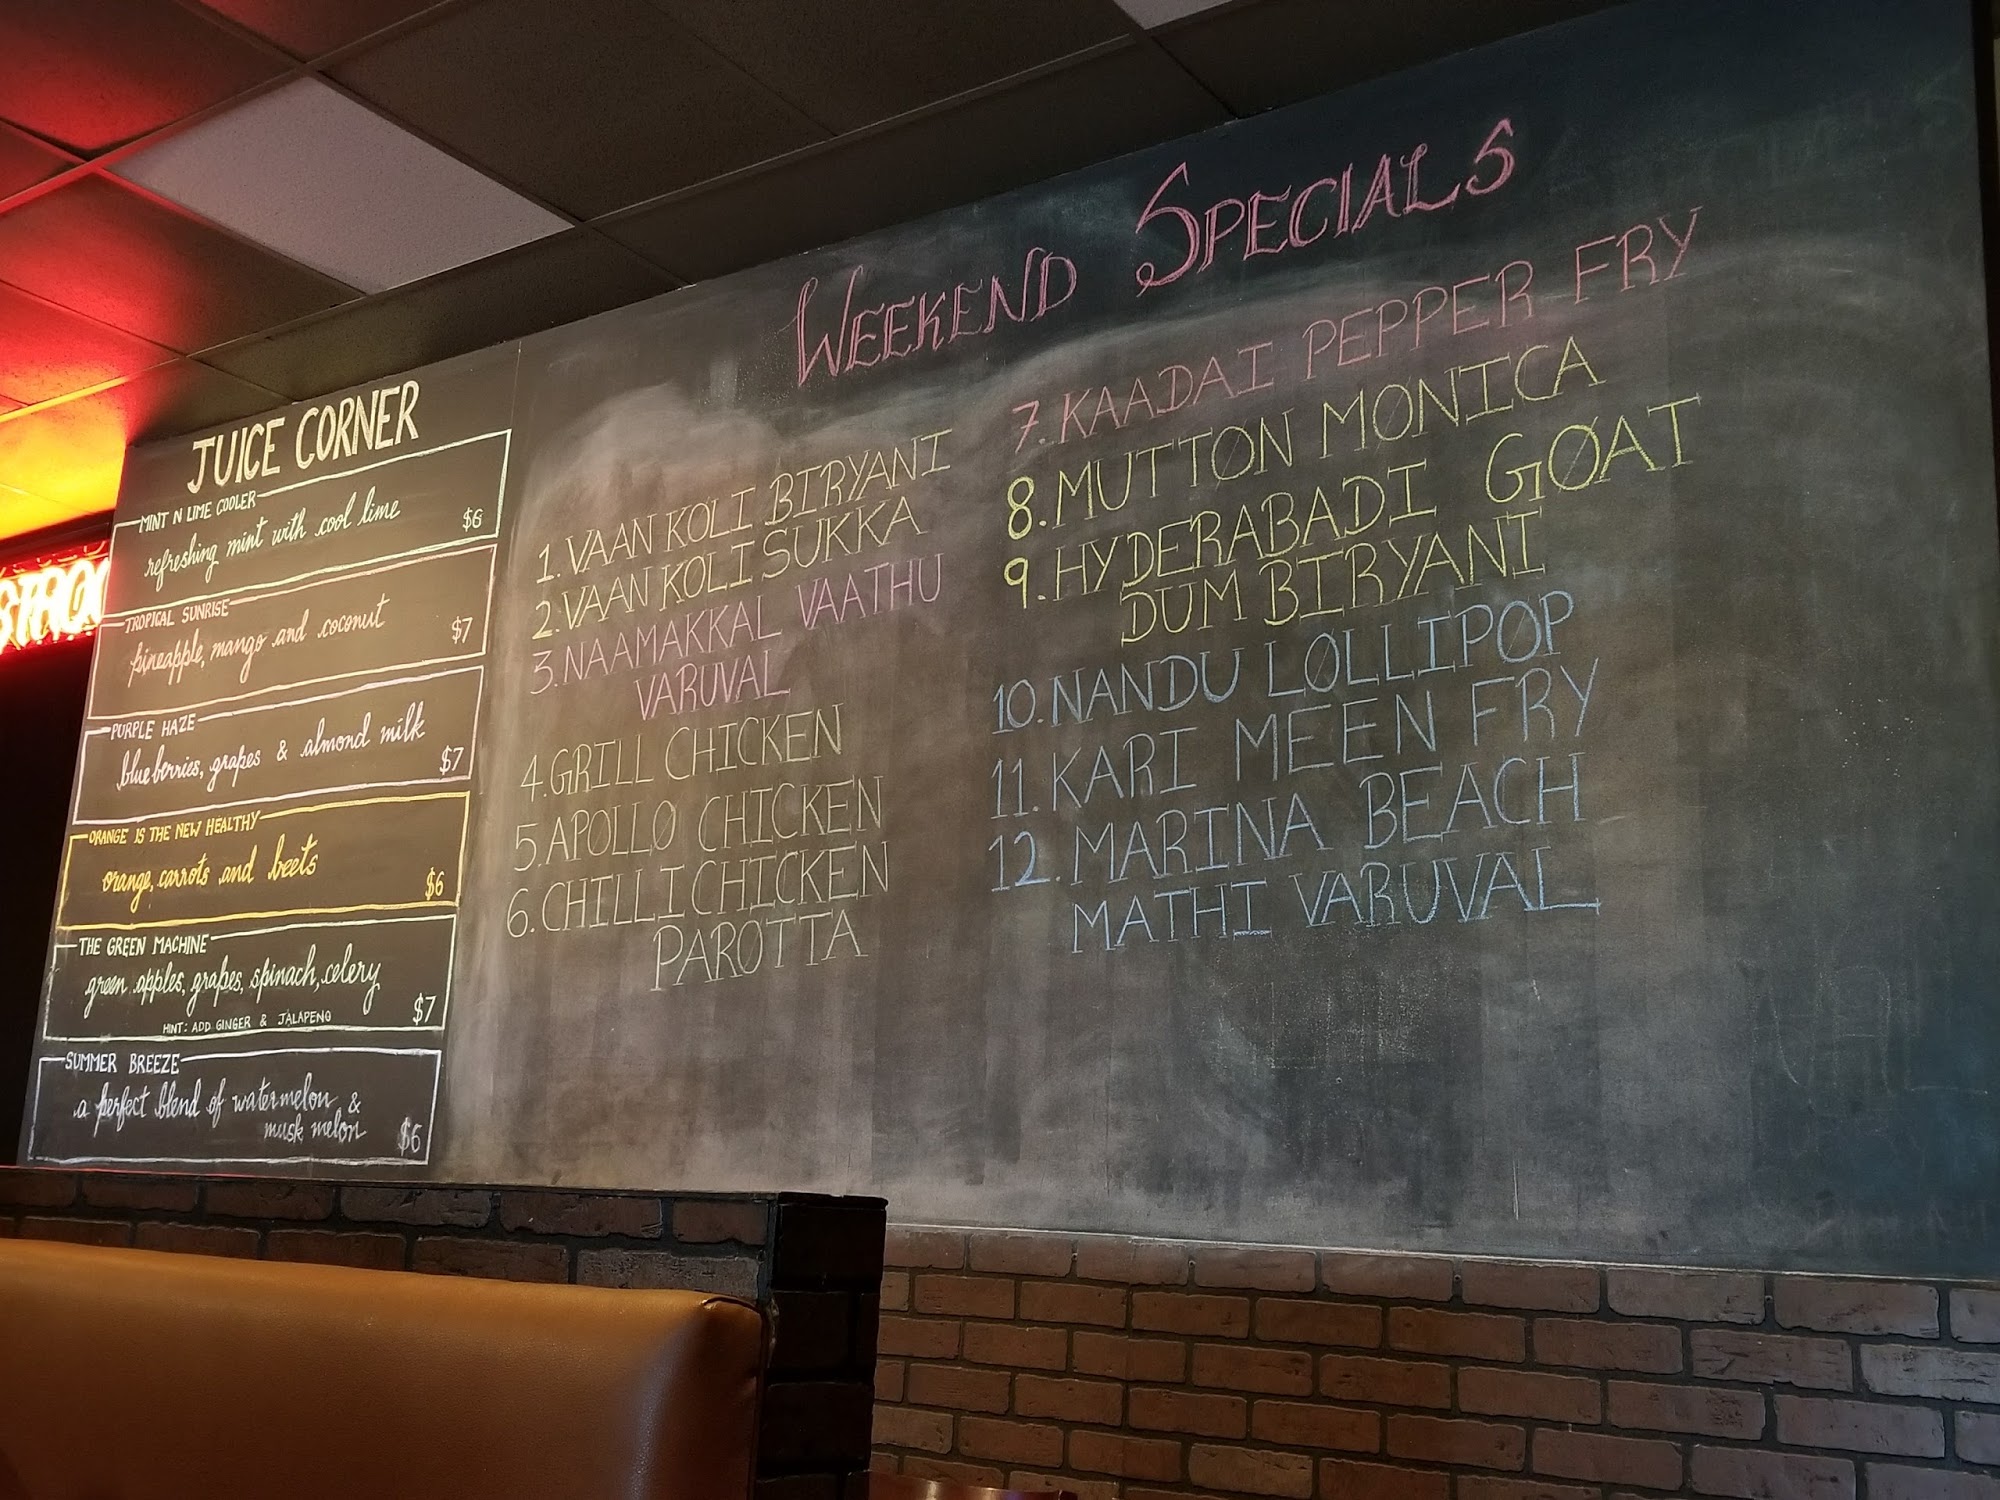 JUICE CORNER
MINT N LIME COOLER
refreshing mint with cool lime
$6
TROPICAL SUNRISE
pineapple, mango and coconut
$7
PURPLE HAZE
blueberries, grapes & almond milk
$7
ORANGE IS THE NEW HEALTHY
orange, carrots and beets
$6
THE GREEN MACHINE
green apples, grapes, spinach, celery
$7
HINT: ADD GINGER & JALAPENO
SUMMER BREEZE
a perfect blend of watermelon &
musk melon
$6
WEEKEND SPECIALS
1. VAAN KOLI BIRYANI
2. VAAN KOLI SUKKA
3. NAAMAKKAL VAATHU
VARUVAL
4. GRILL CHICKEN
5. APOLLO CHICKEN
6. CHILLI CHICKEN
PAROTTA
7. KAADAI PEPPER FRY
8. MUTTON MONICA
9. HYDERABADI GOAT
DUM BIRYANI
10. NANDU LOLLIPOP
11. KARI MEEN FRY
12. MARINA BEACH
MATHI VARUVAL